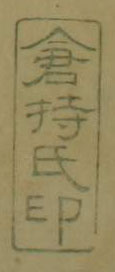 倉持氏印